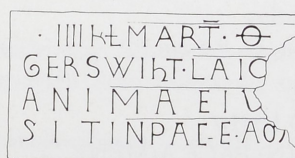 · IIII kł MART̄ · Ꝋ
GERSWIhT · LAIC
ANIMA EIV
SIT INPACE · AO